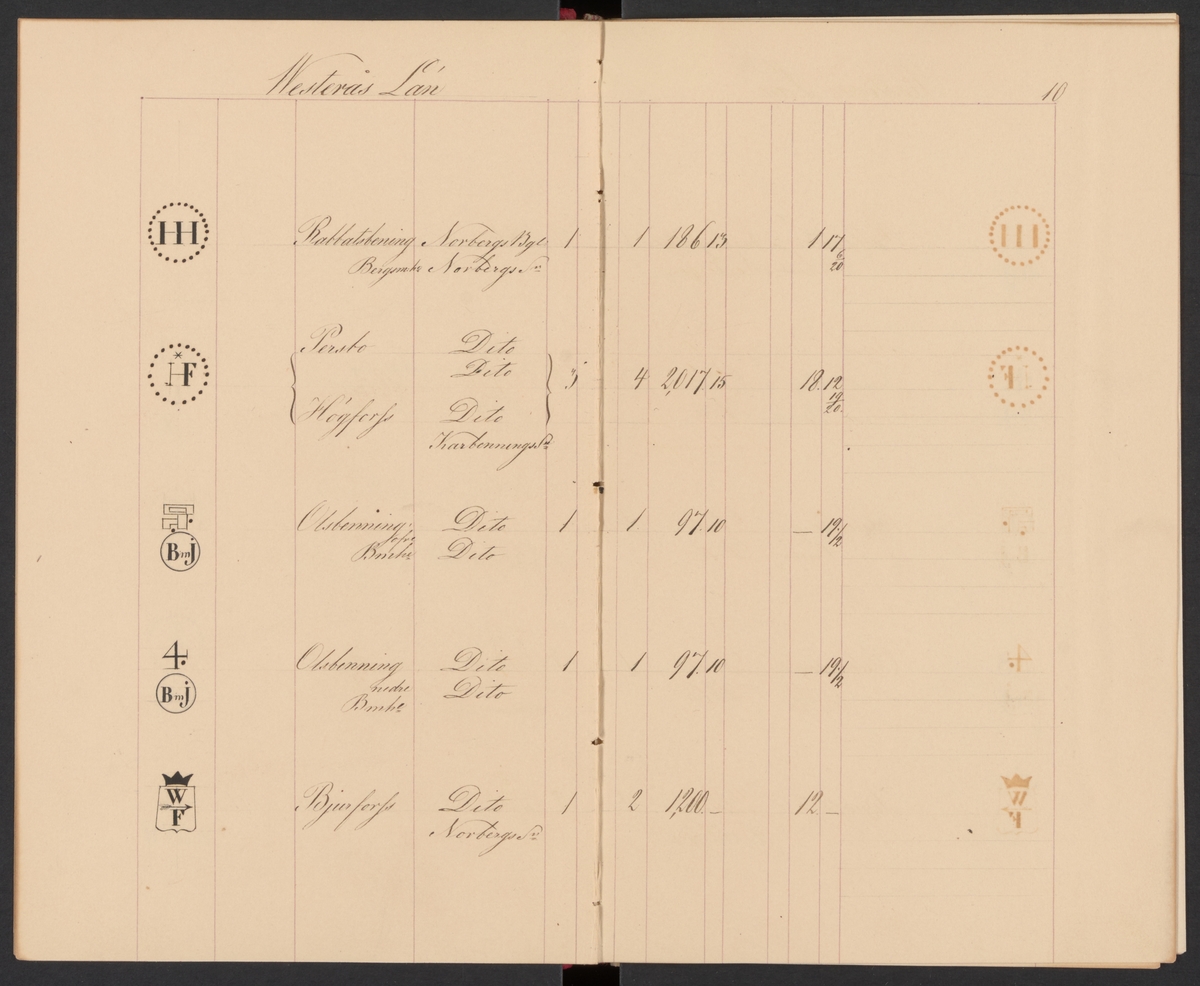 Westerås Län
10
HH Rabbatsbening Norbergs Bgl 1 1 186 13 1 17 6/20
Bergsmbr Norbergs Sn
HF Persbo Dito
Dito 3 4 2,017. 15 18. 12 19/20.
Högforss Dito
Karbennings Sn
Olsbenning Dito 1 1 97. 10 — 19. 1/2
BmJ Bmbr Dito
4. Olsbenning Dito 1 1 97. 10 — 19. 1/2
BmJ nedre Dito
Bmbr
W F Bjurforss Dito 1 2 1,200. — 12. —
Norbergs Sn